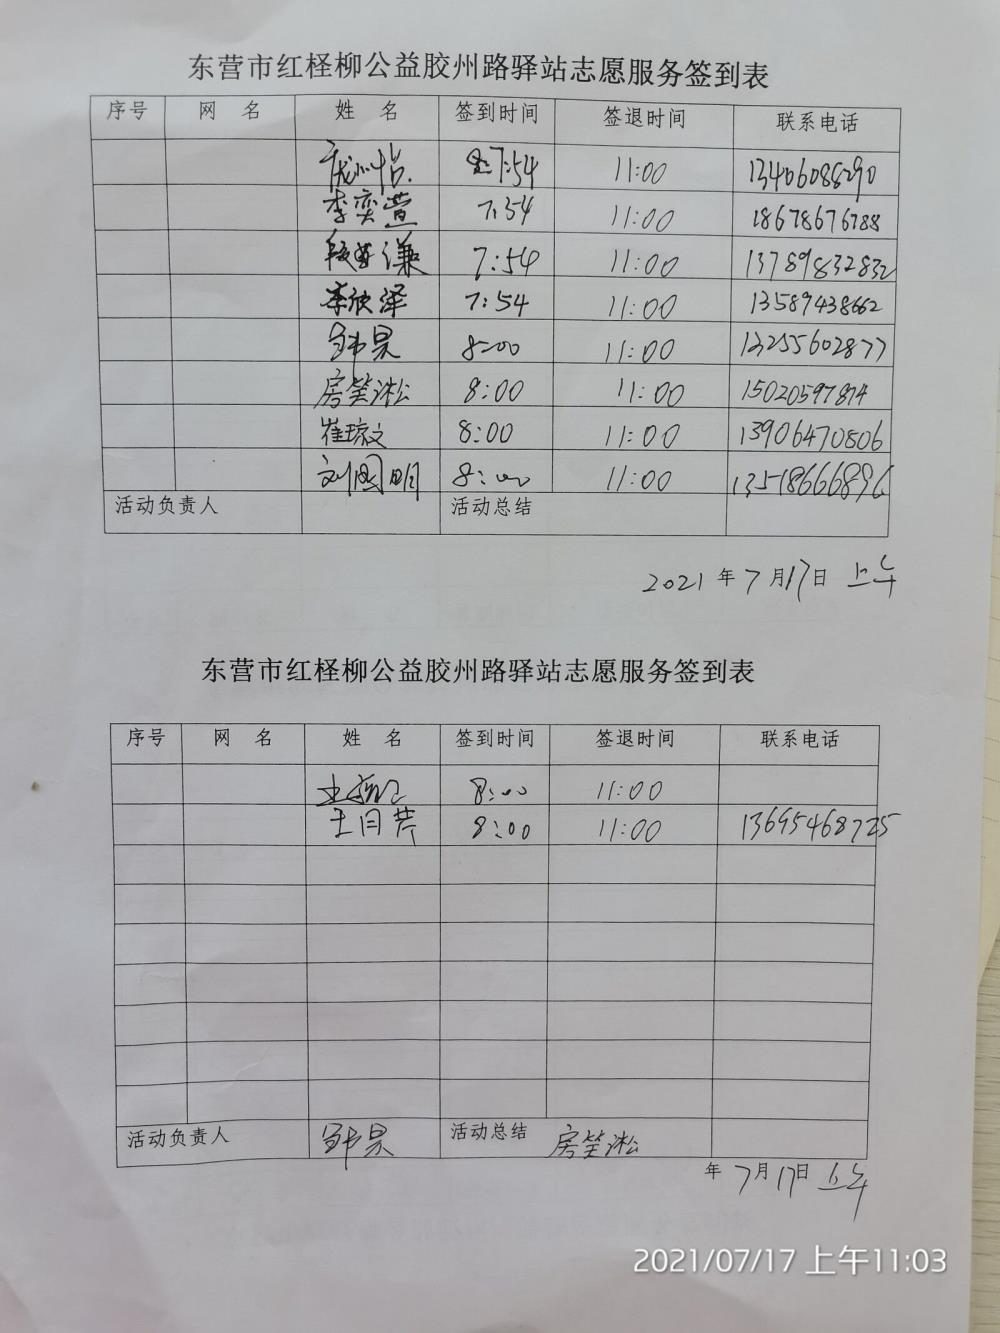 东营市红柽柳公益胶州路驿站志愿服务签到表
序号 网 名 姓 名 签到时间 签退时间 联系电话
7:54 11:00 13406088290
李奕萱 7:54 11:00 18678676788
谦 7:54 11:00 13789832832
李欣泽 7:54 11:00 13589438662
昊 8:00 11:00 13255602877
房笑淞 8:00 11:00 15020597874
崔琼文 8:00 11:00 13906470806
刘国明 8:00 11:00 13518666896
活动负责人 活动总结
2021 年 7 月 17 日 上午
东营市红柽柳公益胶州路驿站志愿服务签到表
序号 网 名 姓 名 签到时间 签退时间 联系电话
8:00 11:00
王月芹 8:00 11:00 13695468725
活动负责人 昊 活动总结 房笑淞
年 7 月 17 日 上午
2021/07/17 上午11:03